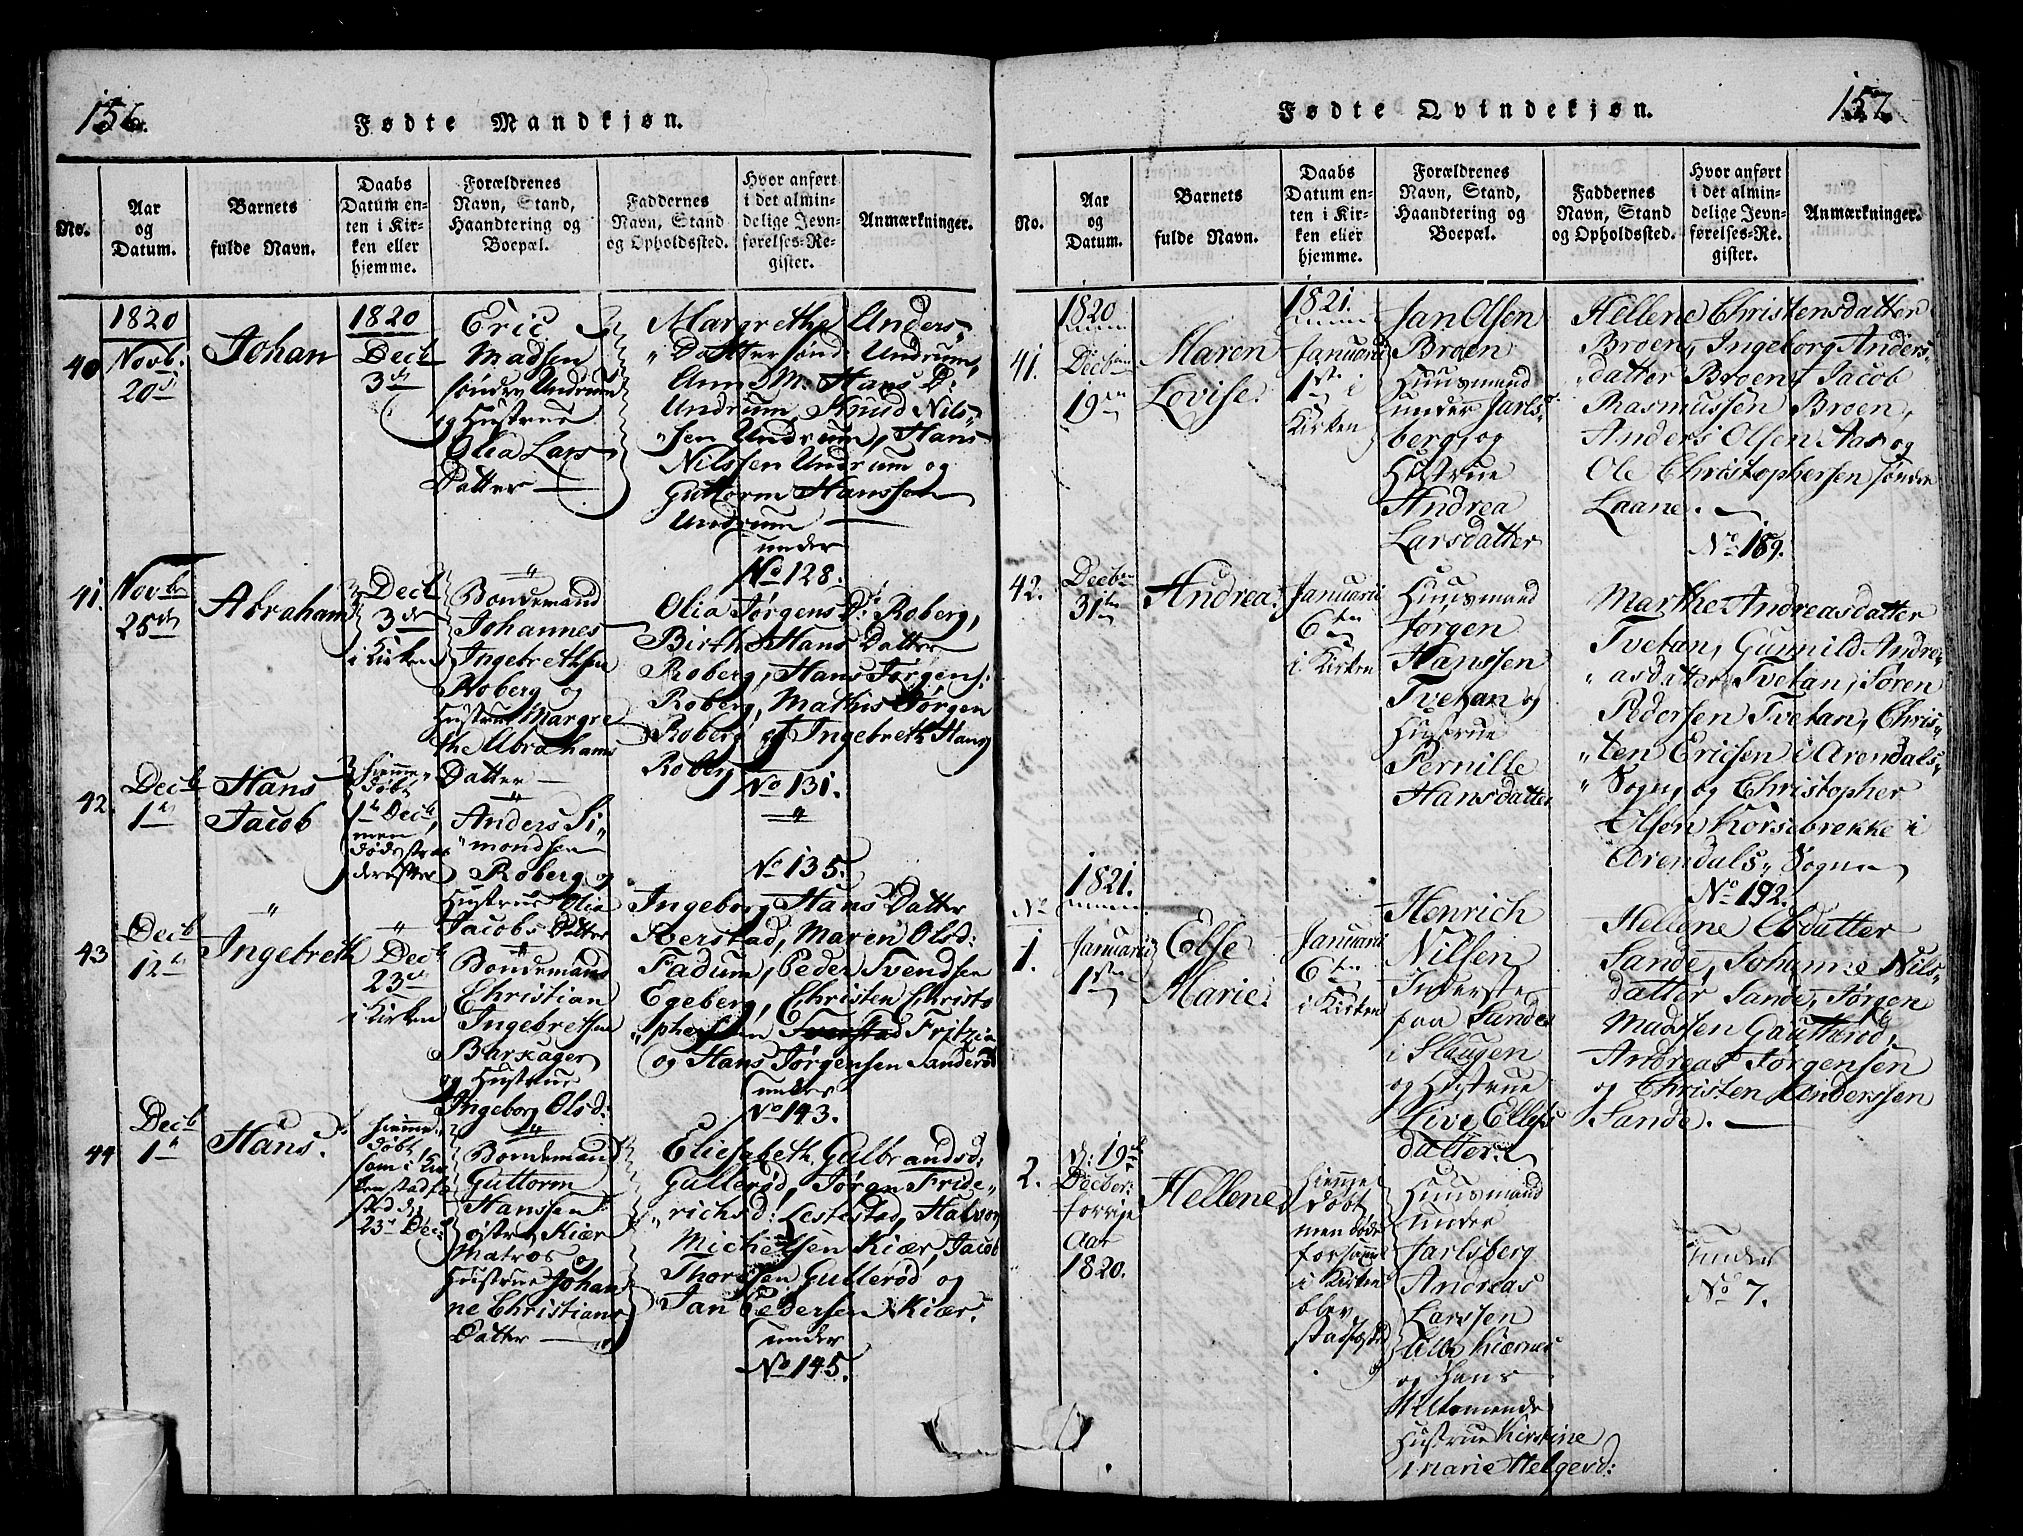 156.
Fødte Mandkjøn.
No.
Aar
og
Datum.
Barnets
fulde Navn.
Daabs
Datum en-
ten i Kir-
ken eller
hjemme.
Forældrenes
Navn, Stand,
Haandtering og
Boepæl.
Faddernes
Navn, Stand
og Opholdssted.
Hvor anført
i det almin-
delige Jevn-
førelses-Re-
gister.
Anmærkninger.
40
1820
Novb:
20de
Johan
1820
Decb
3de
Eric
Madsen
søndre Undrum
og Hustrue
Olia Lars
Datter
Margrethe Anders
Datter sønd: Undrum,
Ann M: Hans D:
Undrum, Knud Nils-
sen Undrum, Hans
Nilssen Undrum og
Guttorm Hanssen
Undrum
under
No 128.
41.
Novb
25de
Abraham
Decb
3de
i Kirken
Bondemand
Johannes
Ingebrethsen
Roberg og
Hustrue Margre
the Abrahams
Datter
Olia Jørgens D: Roberg,
Birthe Hans Datter
Roberg, Hans Jørgens:
Roberg, Mathis Jørgen
Roberg, og Ingebreth Hans
Roberg
No 131.
42.
Decb
1te
Hans
Jacob
Hiemme-
døbt
1te Decb,
men
døde strax
derefter
Anders Si-
mondsen
Roberg og
Hustrue Olia
Jacobs Datter
No 135.
43
Decb
12te
Ingebreth
Decb
23de
i Kirken
Bondemand
Christian
Ingebretsen
Barkager
og Hustrue
Ingeborg Olsd:
Ingeborg Hans Datter
Sverstad, Maren Olsd:
Fadum, Peder Svendsen
Egeberg, Christen Christo
phersen Fritzøe
og Hans Jørgensen Sanderød
under
No 143.
44
Decb
1te
Hans.
Hiemme-
døbt
som i Kir
ken stadfæ
sted d.
23de Dec:
Bondemand
Guttorm
Hanssen
østre Kiær
Matros og
Hustrue Johan
ne Christians
Datter
Eliesabeth Gulbrandsd:
Gullerød, Jøran Fride-
richsd: Lestestad, Halvor
Michelsen Kiær, Jacob
Thoresen Gullerød, og
Jan Pedersen Kiær.
under
No 145.
157.
Fødte Qvindekjøn.
No.
Aar
og
Datum.
Barnets
fulde Navn.
Daabs
Datum en-
ten i Kir-
ken eller
hjemme.
Forældrenes
Navn, Stand,
Haandtering og
Boepæl.
Faddernes
Navn, Stand
og Opholdssted.
Hvor anført
i det almin-
delige Jevn-
førelses-Re-
gister.
Anmærkninger.
41.
1820
Decbr
19de
Maren
Lovise.
1821.
Januarii
1ste i
Kirken
Jan Olsen
Broen
Huusmand
under Jarls-
berg, og
Hustrue
Andrea
Larsdatter
Hellene Christensdatter
Broen, Ingeborg Anders-
datter Broen, Jacob
Rasmussen Broen,
Anders Olsen Aas og
Ole Christophersen søndre
Laane.
No 189.
42.
Decbr
31te
Andrea.
Januarii
6ten
i Kirken
Huusmand
Jørgen
Hanssen
Tvetan og
Hustrue
Pernille
Hansdatter
Marthe Andreasdatter
Tvetan, Gunnild Andre-
asdatter Tvetan, Søren
Pedersen Tvetan, Chris-
ten Ericsen i Arendals-
Sogn og Christopher
Olsen Korsebrekke i
Arendals Sogn
No 192.
No
1.
1821.
Januarii
1ste
Else
Marie.
Januarii
6ten
i Kirken
Henrich
Nilsen
Inderste
paa Sande
i Slaugen
og Hustrue
Live Ellefs
datter.
Hellene Ebdatter
Sande, Johanne Nils-
datter Sande, Jørgen
Madssen Gautterød,
Andreas Jørgensen
og Christen Anderssen
Sande.
2.
d: 19de
Decber:
forrige
Aar
1820.
Hellene
hiemme
døbt
men døde
førend
i Kirken
blev
stadfæsted
Huusmand
under
Jarlsberg
Andreas
Larssen
Lille Kiærnes
og Hans
Hustrue Kirstine
Marie Helgesd:
under
No 7.